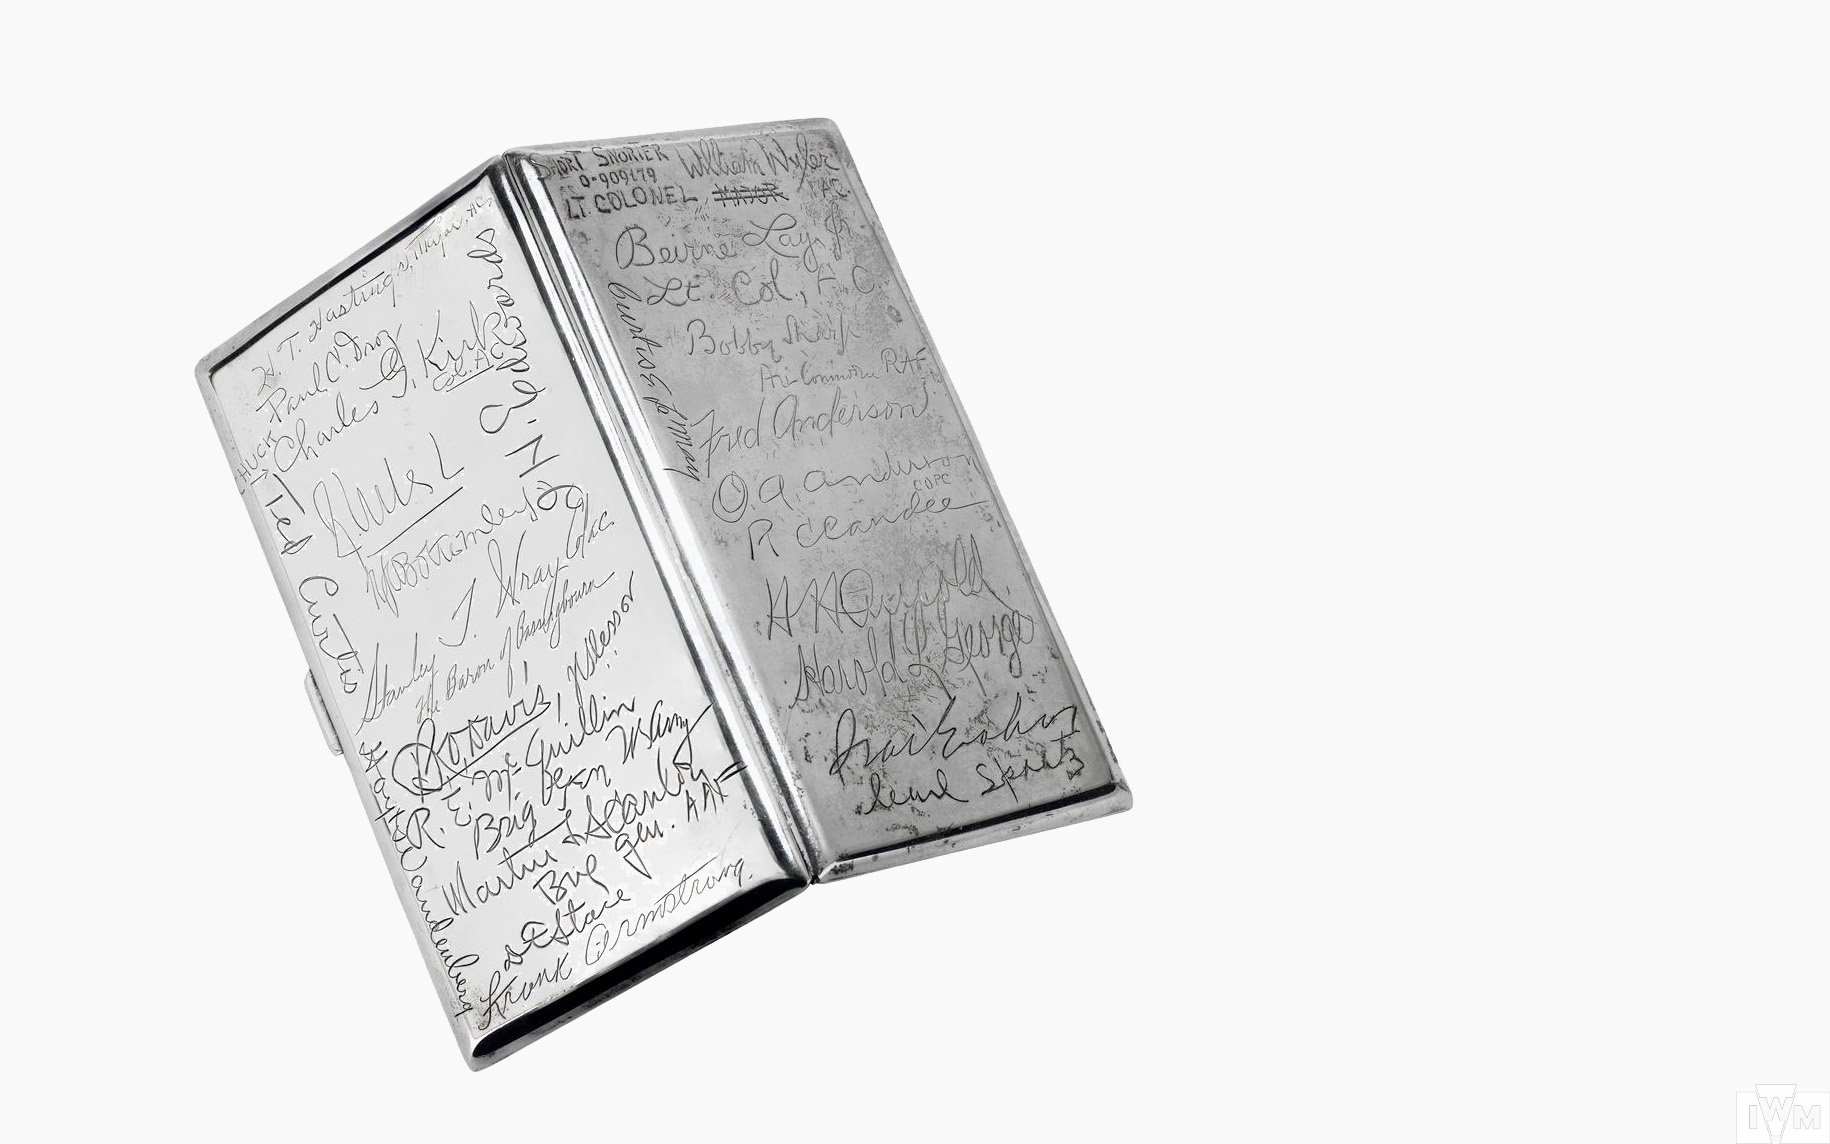 H. T. Hastings, Major, AC
Paul C. Droz
CHUCK
Charles G. Kirk
Col. A.C.
Ted Curtis
N Bottomley
Stanley T. Wray Col. A.C.
The Baron of Bassingbourn
J Slessor
R. E. Mc Quillin
Brig Gen
Martin F Scanlon
Brig gen. AAF
Hoyt S Vandenberg
D F Stace
Frank Armstrong.
SHORT SNORTER
William Wyler
0-909179
LT. COLONEL MAJOR A.C.
Beirne Lay, Jr
Lt. Col., A.C.
Curtis LeMay
Bobby Sharp
Air Commodore RAF
Fred Anderson
O.A. Anderson
R C Candee
H H Arnold
Harold L George
Ira C Eaker
Carl Spaatz
IWM